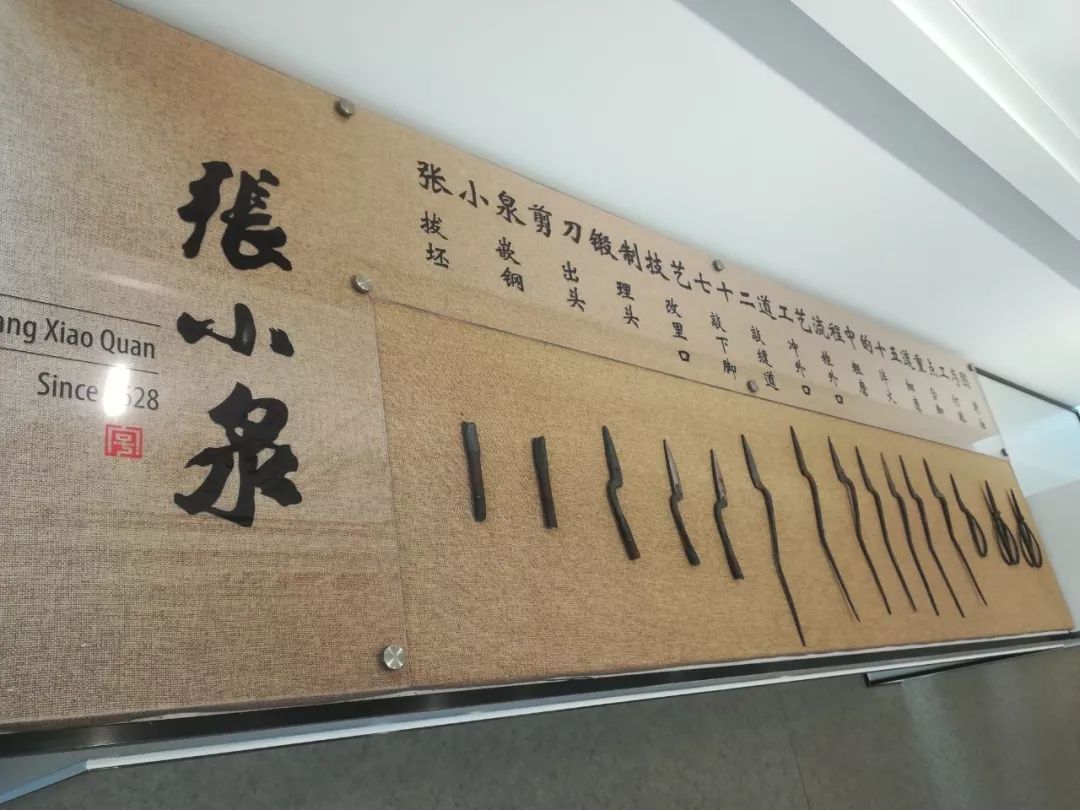 張小泉
ang Xiao Quan
Since 1628
张小泉剪刀锻制技艺七十二道工艺流程中的十五道重点工序图
拔坯
嵌钢
出头
理头
改里口
敲下脚
敲缝道
冲外口
锉外口
粗磨
淬火
细磨